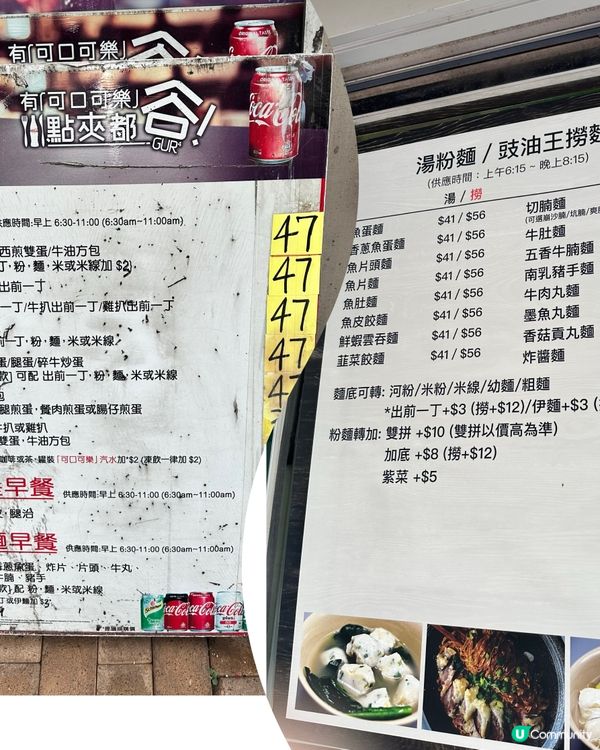 有「可口可樂」
有「可口可樂」
點夾都
谷!
GUR
ORIGINAL TASTE
Coca-Cola
供應時間:早上 6:30-11:00 (6:30am~11:00am)
西煎雙蛋/牛油方包
丁,粉,麵,米或米線加 $2)
出前一丁
一丁/牛扒出前一丁/雞扒出前一丁
丁,粉,麵,米或米線
蛋/腿蛋/碎牛炒蛋
款] 可配 出前一丁,粉,麵,米或米線
包
腿煎蛋,餐肉煎蛋或腸仔煎蛋
牛扒或雞扒
雙蛋,牛油方包
咖啡或茶,罐裝「可口可樂」汽水加*$2 (凍飲一律加 $2)
早餐 供應時間:早上 6:30-11:00 (6:30am~11:00am)
腿治
早餐 供應時間:早上 6:30-11:00 (6:30am~11:00am)
香蔥魚蛋、炸片、片頭、牛丸、
牛腩、豬手
款] 配 粉,麵,米或米線
丁或伊麵加 $3
47
47
47
47
47
湯粉麵 / 豉油王撈麵
(供應時間:上午6:15 ~ 晚上8:15)
湯 / 撈
魚蛋麵 $41 / $56
香蔥魚蛋麵 $41 / $56
魚片頭麵 $41 / $56
魚片麵 $41 / $56
魚肚麵 $41 / $56
魚皮餃麵 $41 / $56
鮮蝦雲吞麵 $41 / $56
韮菜餃麵 $41 / $56
切腩麵
(可選崩沙腩/坑腩/爽腩
牛肚麵
五香牛腩麵
南乳豬手麵
牛肉丸麵
墨魚丸麵
香菇貢丸麵
炸醬麵
麵底可轉: 河粉/米粉/米線/幼麵/粗麵
*出前一丁+$3 (撈+$12)/伊麵+$3
粉麵轉加: 雙拼 +$10 (雙拼以價高為準)
加底 +$8 (撈+$12)
紫菜 +$5
U Community